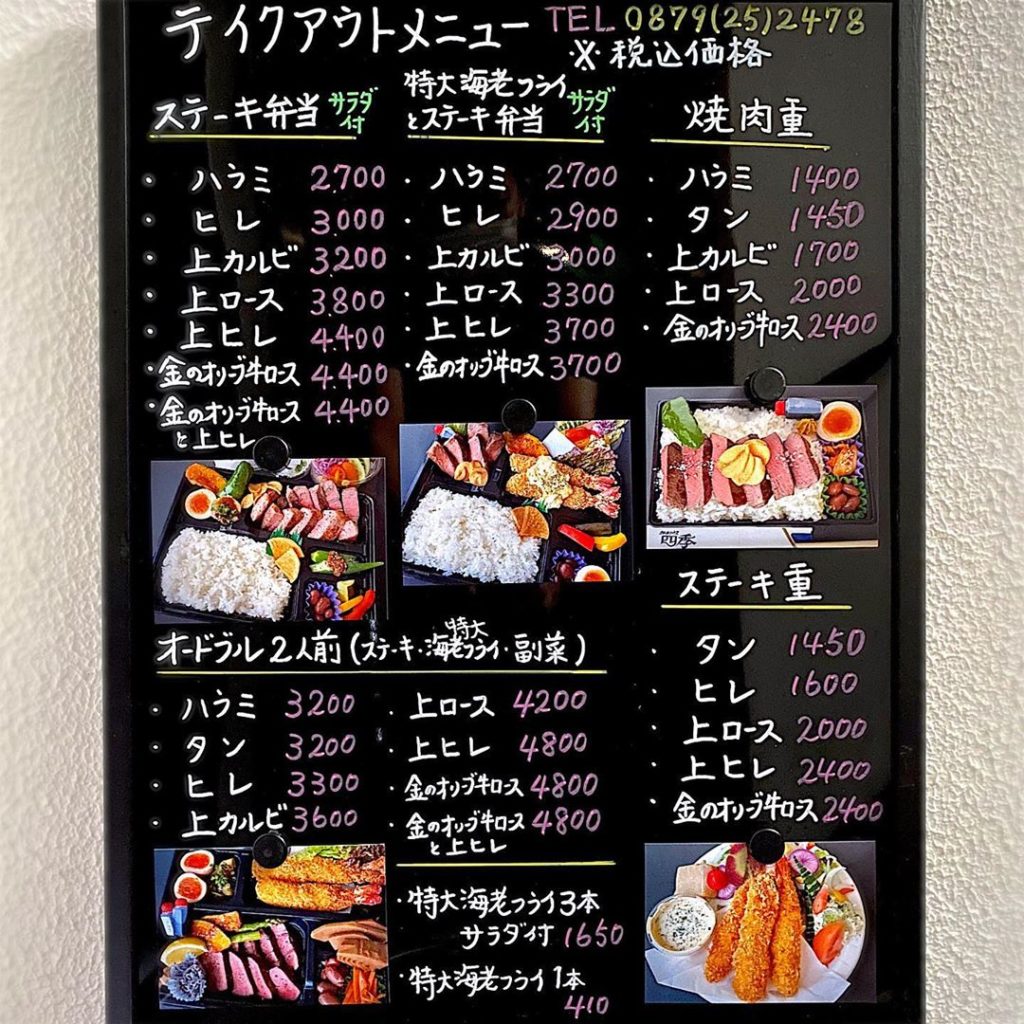 テイクアウトメニュー TEL 0879(25)2478
※税込価格
ステーキ弁当 サラダ付
・ハラミ 2.700
・ヒレ 3.000
・上カルビ 3.200
・上ロース 3.800
・上ヒレ 4.400
・金のオリーブ牛ロース 4.400
・金のオリーブ牛ロース 4.400
と上ヒレ
特大海老フライ
とステーキ弁当 サラダ付
・ハラミ 2700
・ヒレ 2900
・上カルビ 3000
・上ロース 3300
・上ヒレ 3700
・金のオリーブ牛ロース 3700
焼肉重
・ハラミ 1400
・タン 1450
・上カルビ 1700
・上ロース 2000
・金のオリーブ牛ロース 2400
四季
ステーキ重
・タン 1450
・ヒレ 1600
・上ロース 2000
・上ヒレ 2400
・金のオリーブ牛ロース 2400
オードブル2人前(ステーキ・特大海老フライ・副菜)
・ハラミ 3200
・タン 3200
・ヒレ 3300
・上カルビ 3600
・上ロース 4200
・上ヒレ 4800
・金のオリーブ牛ロース 4800
・金のオリーブ牛ロース 4800
と上ヒレ
・特大海老フライ3本
サラダ付 1650
・特大海老フライ1本
410